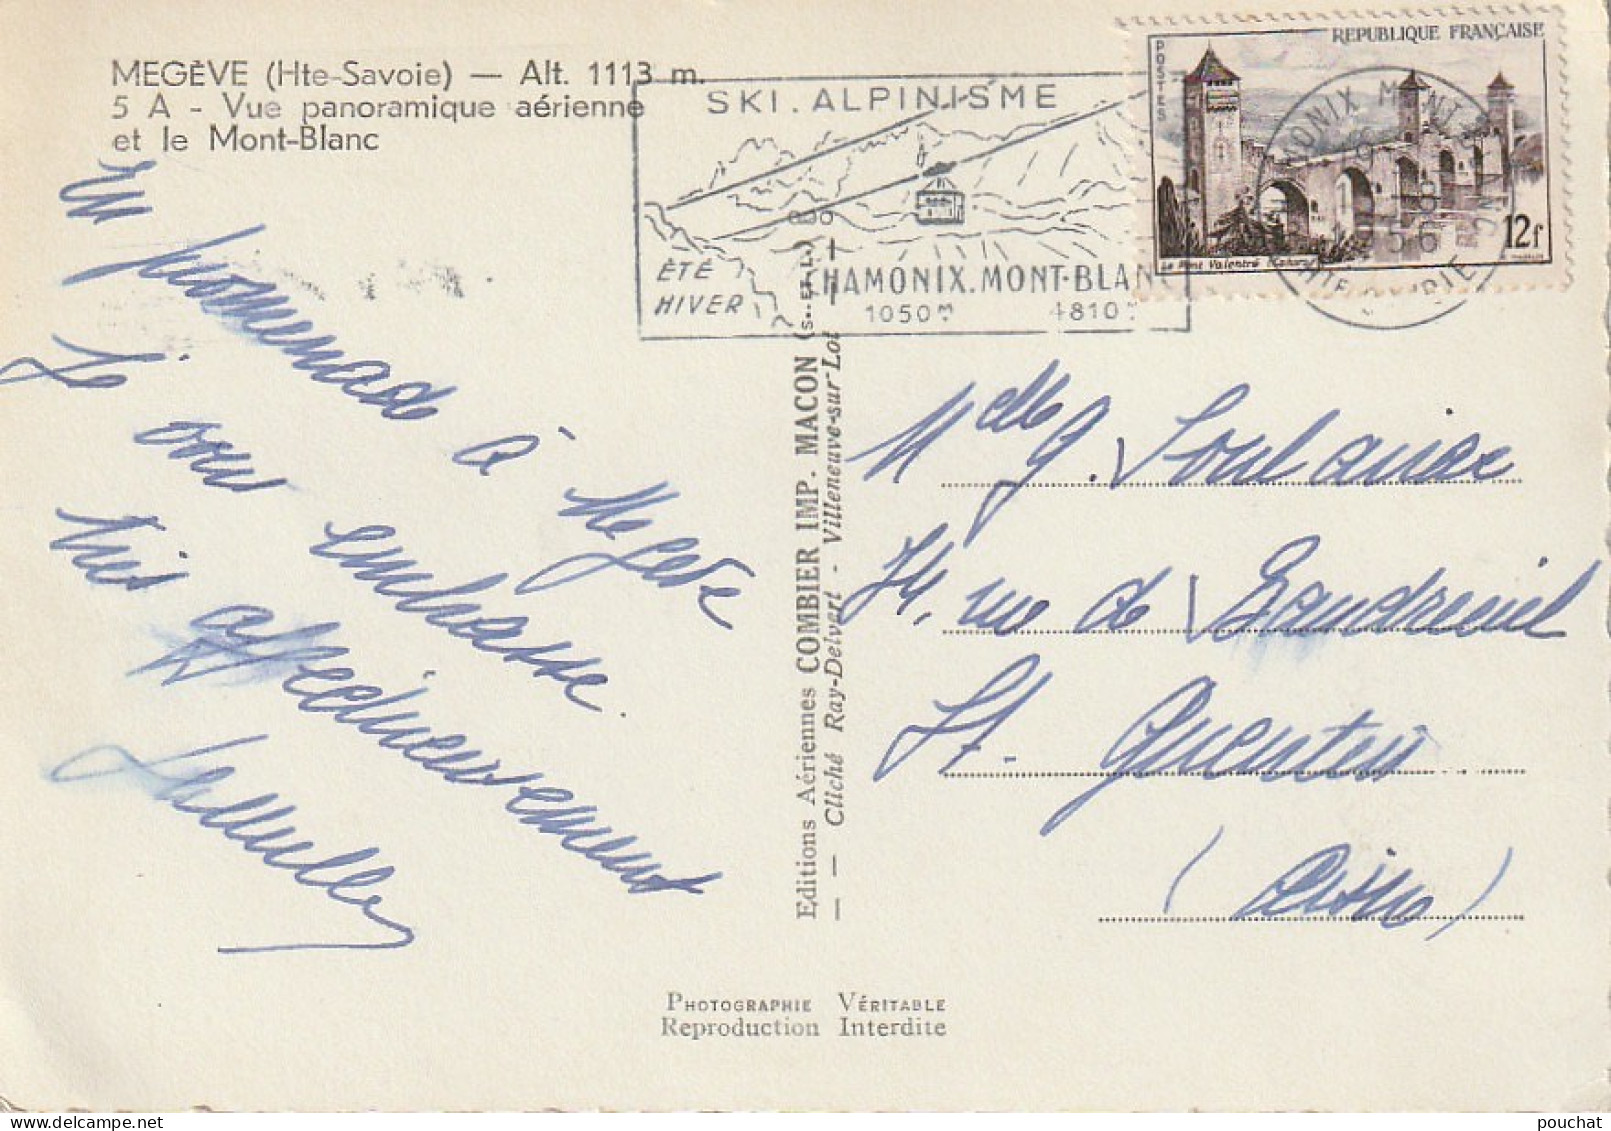 MEGÈVE (Hte-Savoie) — Alt. 1113 m.
5 A - Vue panoramique aérienne
et le Mont-Blanc
En promenade à Megève
Je vous embrasse
très affectueusement
SKI. ALPINISME
ÉTÉ
HIVER
CHAMONIX. MONT-BLANC
1050m 4810m
POSTES
REPUBLIQUE FRANÇAISE
12f
Le Pont Valentré Cahors
CHAMONIX MONT BLANC
HTE SAVOIE
1956
Editions Aériennes COMBIER IMP. MACON (S.-ET-L.)
— — Cliché Ray-Delvert - Villeneuve-sur-Lot
Mdlle G.
74, rue de
St. Quentin
(Aisne)
PHOTOGRAPHIE VÉRITABLE
Reproduction Interdite
pouchat